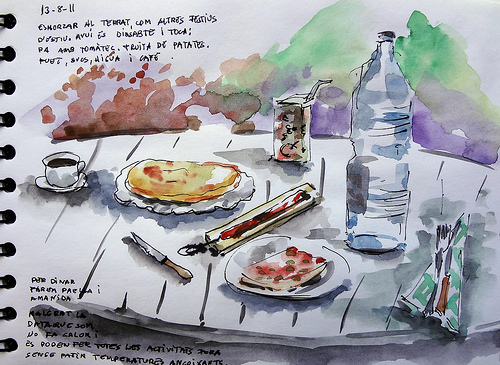 13-8-11
ESMORZAR AL TERRAT, COM ALTRES FESTIUS
D'ESTIU. AVUI ÉS DISSABTE I TOCA:
PA AMB TOMÀTEG, TRUITA DE PATATES,
FUET, SUCS, AIGUA I CAFÈ.
PER DINAR
FAREM PAELLA I
AMANIDA
MALGRAT LA
DATA QUE SOM
NO FA CALOR I
ES PODEN FER TOTES LES ACTIVITATS FORA
SENSE PATIR TEMPERATURES ANGOIXANTS.